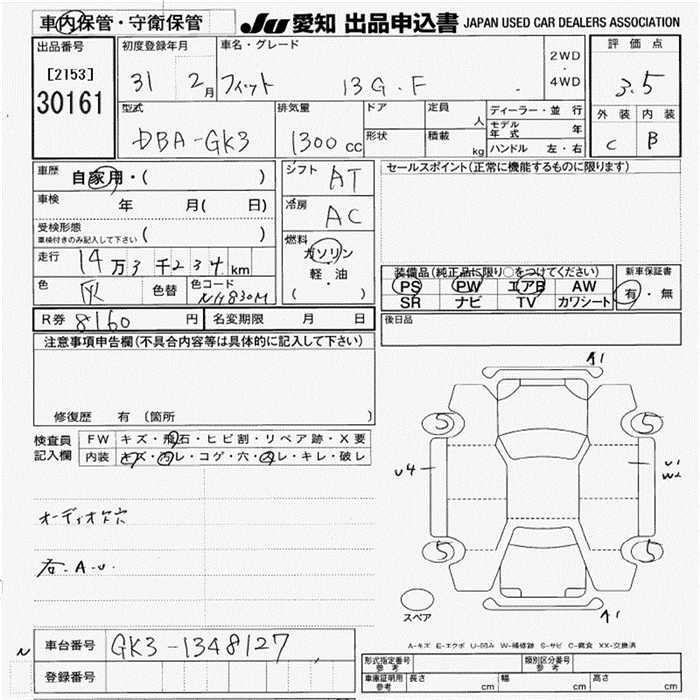 車内保管・守衛保管
JU 愛知 出品申込書 JAPAN USED CAR DEALERS ASSOCIATION
出品番号
[2153]
30161
初度登録年月
31 2月
車名・グレード
フィット 13G・F
2WD
・
4WD
評価点
3.5
外装 内装
C B
型式
DBA-GK3
排気量
1300cc
ドア
形状
定員
人
積載
kg
ディーラー・並行
モデル年式 年
ハンドル 左・右
車歴
自家用・( )
車検
年 月( 日)
受検形態
車検付きのみ記入して下さい ( )
走行
14万3千234km
色
灰
色替
色コード
NH830M
シフト
AT
冷房
AC
燃料
ガソリン
軽・油
( )
セールスポイント(正常に機能するものに限ります)
装備品(純正品に限り○をつけてください)
PS PW エアB AW
SR ナビ TV カワシート
新車保証書
有・無
R券 8160円
名変期限 月 日
後日品
注意事項申告欄(不具合内容等は具体的に記入して下さい)
修復歴 有 (箇所 )
検査員記入欄
FW キズ・飛石・ヒビ割・リペア跡・X要
内装 キズ・汚レ・コゲ・穴・スレ・キレ・破レ
オーディオ欠穴
右.A.U.
A1
5 5
U4
U1
W2
5 5
スペア
A1
A-キズ E-エクボ U-凹み W-補修跡 S-サビ C-腐食 XX-交換済
N
車台番号 GK3-1348127
登録番号
形式指定番号 参考
類別区分番号 参考
車庫証明用 参考
長さ cm
幅 cm
高さ cm